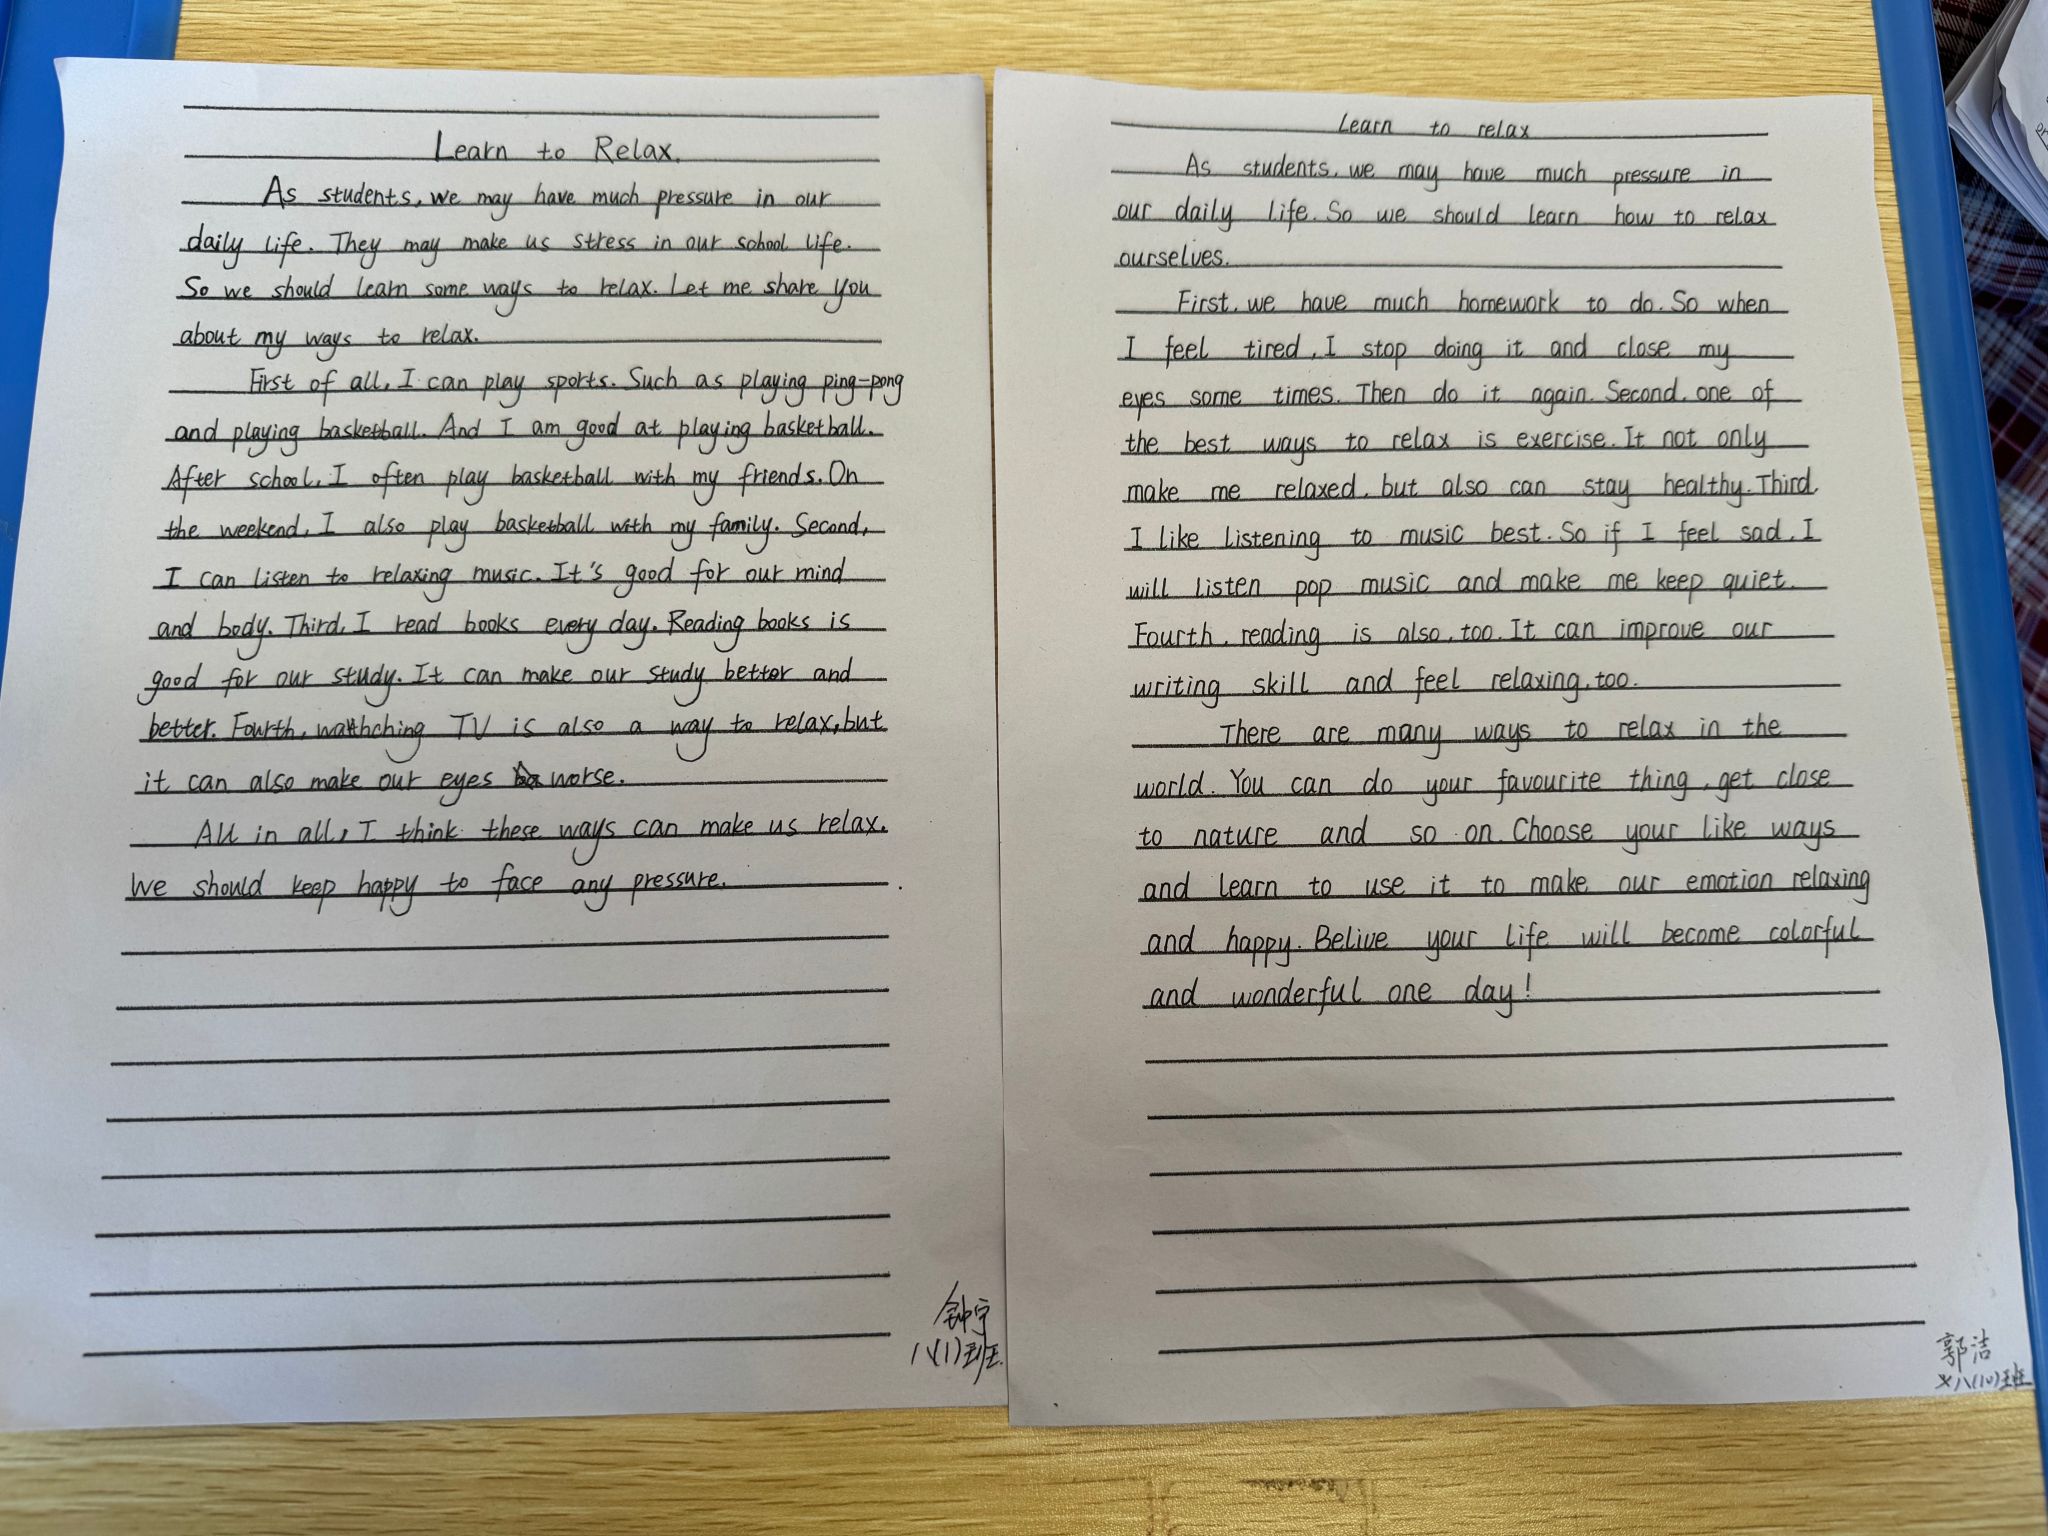 Learn to Relax.
As students, we may have much pressure in our
daily life. They may make us stress in our school life.
So we should learn some ways to relax. Let me share you
about my ways to relax.
First of all, I can play sports. Such as playing ping-pong
and playing basketball. And I am good at playing basketball.
After school, I often play basketball with my friends. On
the weekend, I also play basketball with my family. Second,
I can listen to relaxing music. It's good for our mind
and body. Third, I read books every day. Reading books is
good for our study. It can make our study better and
better. Fourth, wathching TV is also a way to relax, but
it can also make our eyes worse.
All in all, I think these ways can make us relax.
We should keep happy to face any pressure.
钟宇
八(1)班
Learn to relax
As students, we may have much pressure in
our daily life. So we should learn how to relax
ourselves.
First, we have much homework to do. So when
I feel tired, I stop doing it and close my
eyes some times. Then do it again. Second, one of
the best ways to relax is exercise. It not only
make me relaxed, but also can stay healthy. Third,
I like listening to music best. So if I feel sad, I
will listen pop music and make me keep quiet.
Fourth, reading is also, too. It can improve our
writing skill and feel relaxing, too.
There are many ways to relax in the
world. You can do your favourite thing, get close
to nature and so on. Choose your like ways
and learn to use it to make our emotion relaxing
and happy. Belive your life will become colorful
and wonderful one day!
郭洁
八(10)班